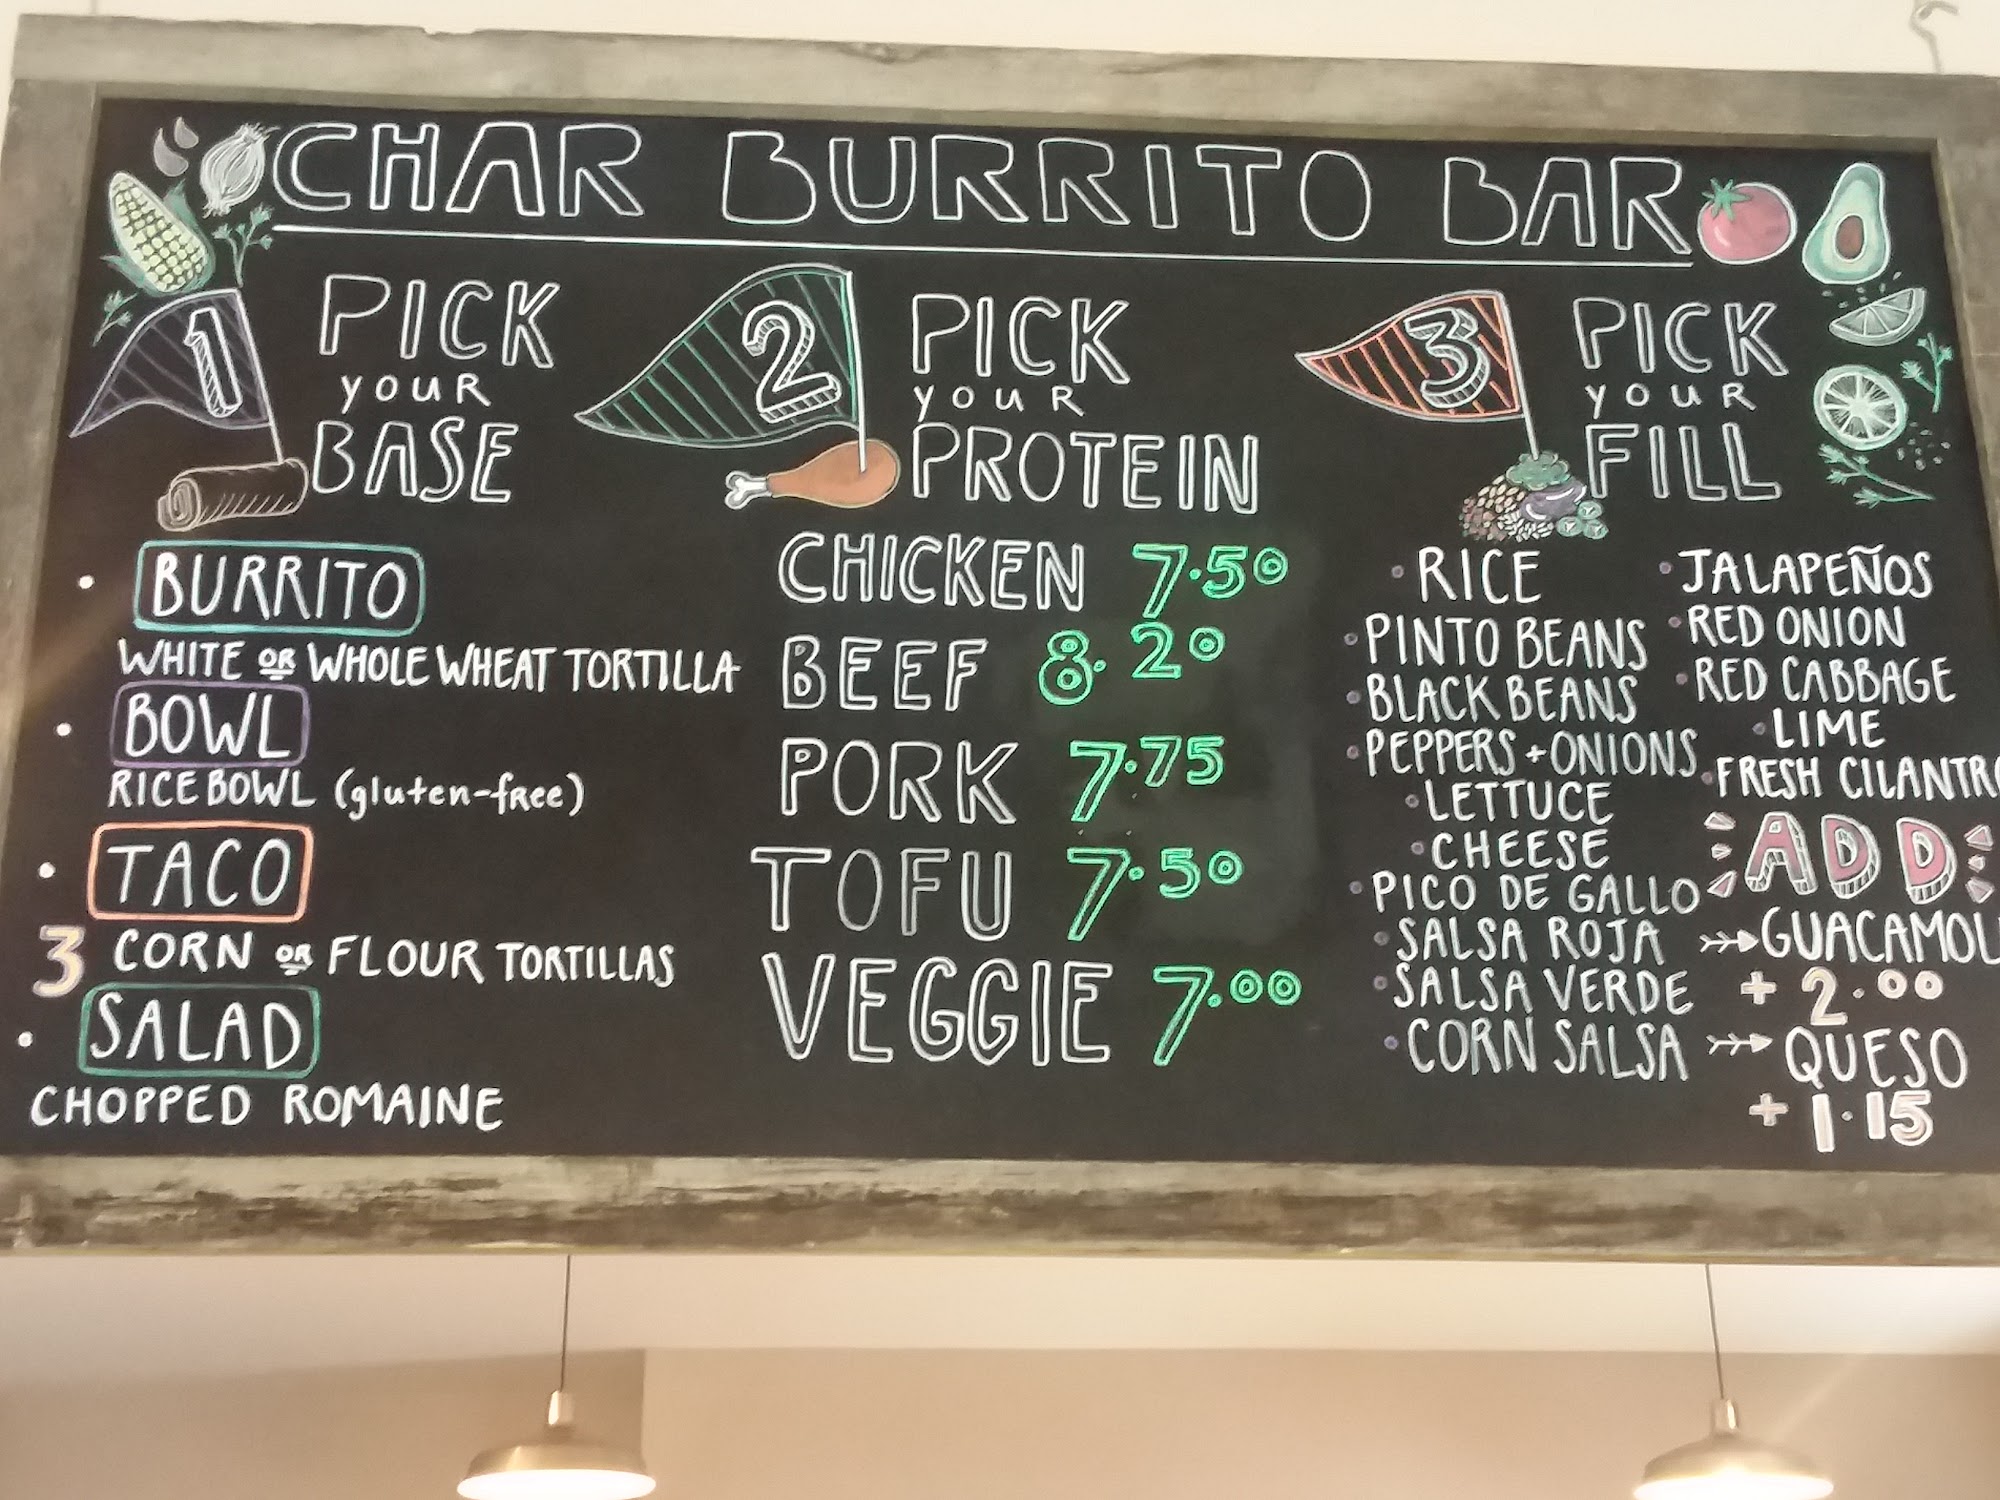 CHAR BURRITO BAR
1
PICK
YOUR
BASE
• BURRITO
WHITE OR WHOLE WHEAT TORTILLA
• BOWL
RICE BOWL (gluten-free)
• TACO
3 CORN OR FLOUR TORTILLAS
• SALAD
CHOPPED ROMAINE
2
PICK
YOUR
PROTEIN
CHICKEN 7.50
BEEF 8.20
PORK 7.75
TOFU 7.50
VEGGIE 7.00
3
PICK
YOUR
FILL
• RICE
• PINTO BEANS
• BLACK BEANS
• PEPPERS + ONIONS
• LETTUCE
• CHEESE
• PICO DE GALLO
• SALSA ROJA
• SALSA VERDE
• CORN SALSA
• JALAPEÑOS
• RED ONION
• RED CABBAGE
• LIME
• FRESH CILANTRO
ADD
GUACAMOL
+ 2.00
QUESO
+ 1.15